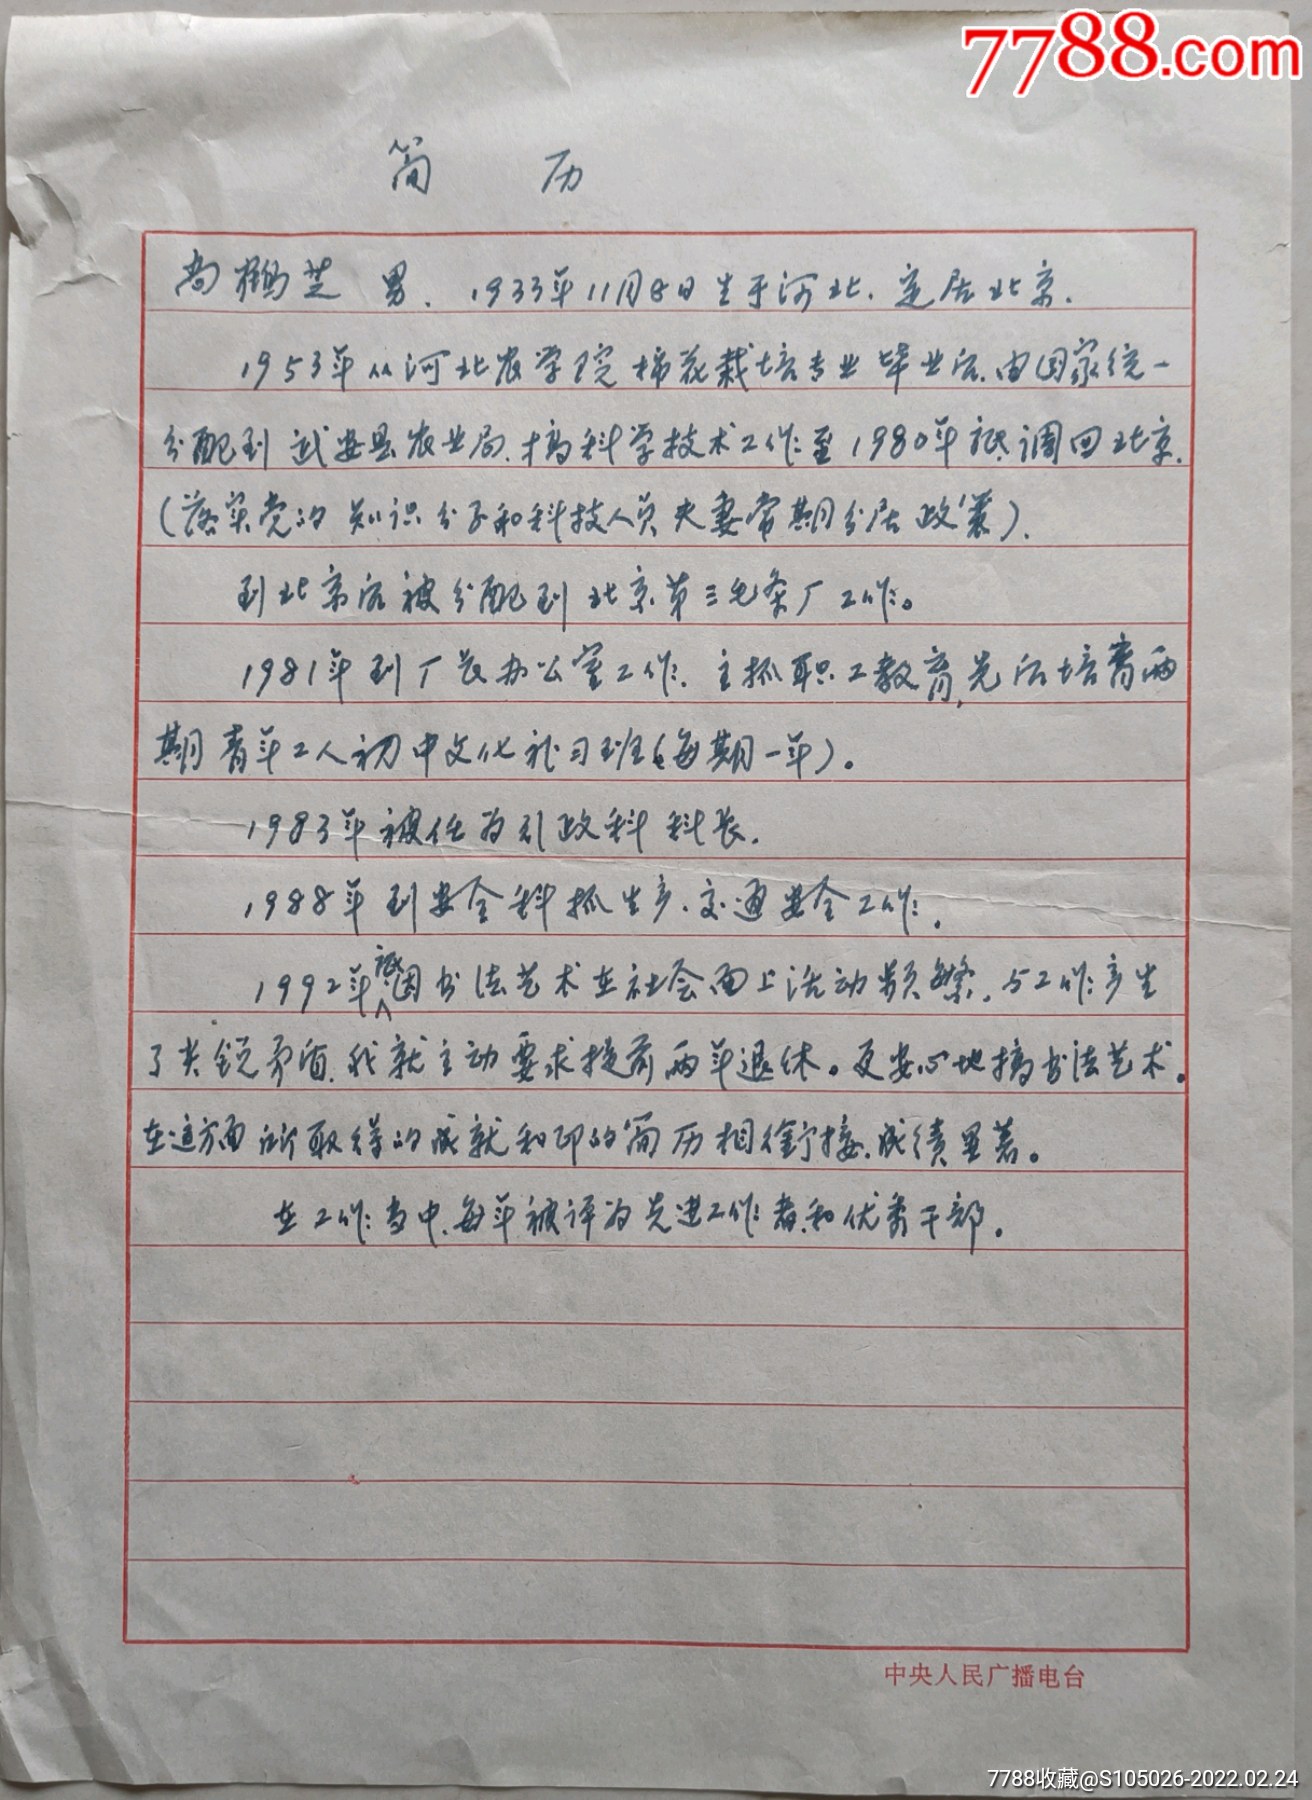 7788.com
简 历
尚鹤芝 男. 1933年11月8日生于河北.定居北京.
1953年从河北农学院棉花栽培专业毕业后.由国家统一
分配到武安县农业局.搞科学技术工作至1980年底.调回北京.
(落实党的知识分子和科技人员夫妻常期分居政策).
到北京后被分配到北京第三毛条厂工作。
1981年到厂长办公室工作.主抓职工教育,先后培育两
期青年工人初中文化补习班(每期一年)。
1983年被任为行政科科长.
1988年到安全科抓生产.交通安全工作.
1992年底因书法艺术在社会面上活动频繁.与工作产生
了尖锐矛盾.我就主动要求提前两年退休。更安心地搞书法艺术.
在这方面所取得的成就和印的简历相衔接.成绩显著。
在工作当中.每年被评为先进工作者和优秀干部.
中央人民广播电台
7788收藏@S105026-2022.02.24